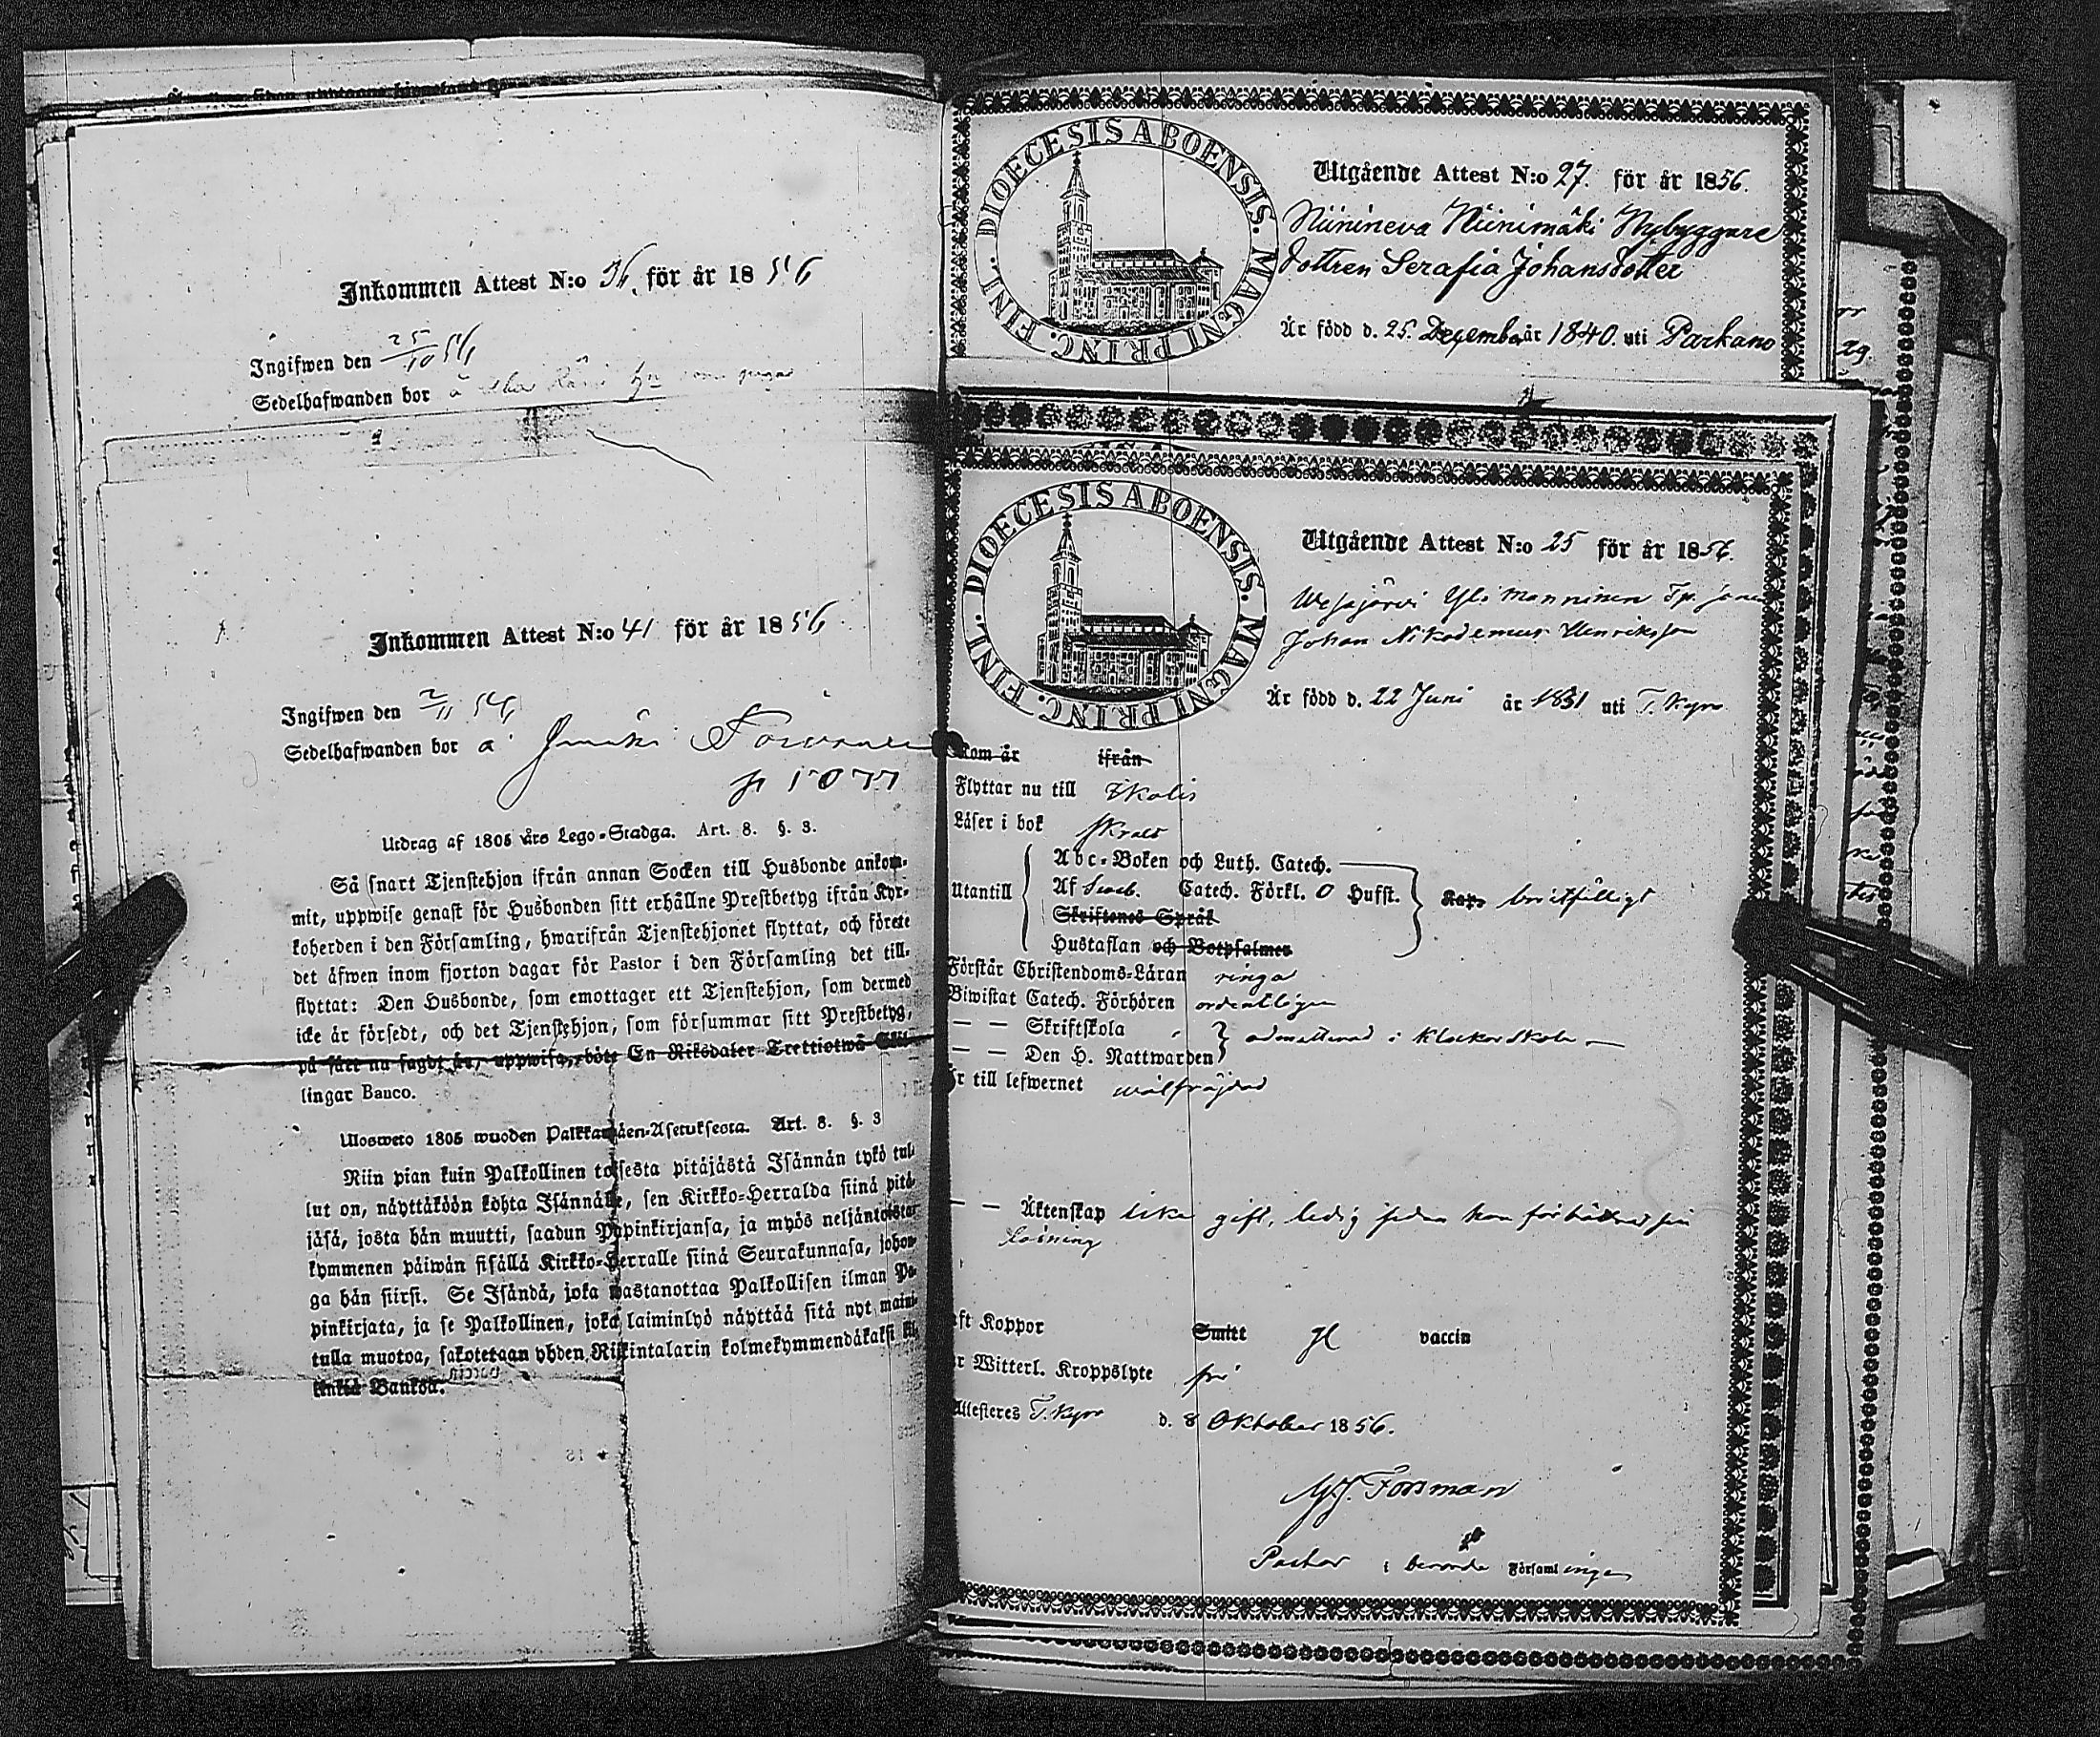 Inkommen Attest N:o 36. för år 1856
Ingifwen den 25/10 56
Sedelhafwanden bor å
Inkommen Attest N:o 41 för år 1856
Ingifwen den 2/11 56
Sedelhafwanden bor å
Utdrag af 1805 års Lego-Stadga. Art. 8. §. 3.
Så snart Tjenstehjon ifrån annan Socken till Husbonde ankom-
mit, uppwise genast för Husbonden sitt erhållne Prestbetyg ifrån Kyr-
koherden i den Församling, hwarifrån Tjenstehjonet flyttat, och förete
det äfwen inom fjorton dagar för Pastor i den Församling det till-
flyttat: Den Husbonde, som emottager ett Tjenstehjon, som dermed
icke är försedt, och det Tjenstehjon, som försummar sitt Prestbetyg,
på sätt nu sagdt är, uppwisa, böte En Riksdaler Trettiotwå Skil-
lingar Banco.
Ulosweto 1805 wuoden Palkkawäen-Asetuksesta. Art. 8. §. 3
Niin pian kuin Palkollinen toisesta pitäjästä Isännän tykö tul-
lut on, näyttäköön kohta Isännälle, sen Kirkko-Herralda siinä pitä-
jäsä, josta hän muutti, saadun Papinkirjansa, ja myös neljäntoista
kymmenen päiwän sisällä Kirkko-Herralle siinä Seurakunnasa, johon-
ga hän siirsi. Se Isändä, joka wastanottaa Palkollisen ilman Pa-
pinkirjata, ja se Palkollinen, joka laiminlyö näyttää sitä nyt maini-
tulla muotoa, sakotetaan yhden Riikintalarin kolmekymmendäkaksi kil-
linkiä Bankoa.
DIOECESIS ABOENSIS. MAGNI PRINC. FINL.
Utgående Attest N:o 27. för år 1856.
Niinineva Niinimäki Nybyggare
dottren Serafia Johansdotter
Är född d. 25. December år 1840. uti Parkano
DIOECESIS ABOENSIS. MAGNI PRINC. FINL.
Utgående Attest N:o 25 för år 1856.
Wesajärvi Yli Manninen Tp. sonen
Johan Nikodemus Henriksson
Är född d. 22 Juni år 1831 uti T. Kyro
Kom år ifrån
Flyttar nu till Ikalis
Läser i bok swagt
Utantill
Abc-Boken och Luth. Catech.
Af Sveb. Catech. Förkl. 0 Hufst.
Kap. bristfälligt
Skriftenes Språk
Hustaflan och Botpsalmer
Förstår Christendoms-Läran ringa
Biwistat Catech. Förhören ordentligen
— — Skriftskola
admitterad i Klockarskola
— — Den H. Nattwarden
Är till lefwernet wälfräjdad
— — Äktenskap icke gift, ledig sedan han förbättrat sin
läsning
Haft Koppor Smitt gl vaccin
Är Witterl. Kroppslyte fri
Attesteres T. Kyro d. 8 Oktober 1856.
G.J. Forsman
Pastor i berörde Församlingen